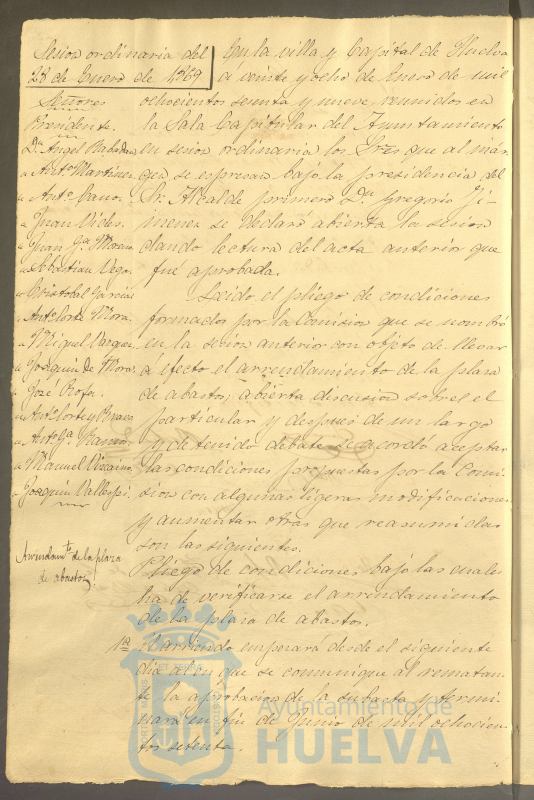 Sesion ordinaria del
28 de Enero de 1869
Señores
Presidente.
Dn Angel Rabadan
" Anto Martinez
" Anto
" Juan Vides
" Juan Ga
" Sebastian Vega
" Cristobal Garcia
" Anto Mora
" Miguel Vazquez
" Joaquin de Mora
" José
" Anto
" Anto Ga Ramos
" Manuel Vizcaino
" Joaquin Vallespi
Arrendamto de la plaza
de abastos
En la villa y Capital de Huelva
a veinte y ocho de Enero de mil
ochocientos sesenta y nueve, reunidos en
la Sala Capitular del Ayuntamiento
en sesion ordinaria los Sres que al mar-
gen se espresan bajo la presidencia del
Sr. Alcalde primero Dn Gregorio Ji-
menez se declaró abierta la sesion
dando lectura del acta anterior que
fué aprobada.
Leido el pliego de condiciones
formados por la Comision que se nombró
en la sesion anterior con objeto de llevar
á efecto el arrendamiento de la plaza
de abastos, abierta discusion sobre el
particular y despues de un largo
y detenido debate se acordó aceptar
las condiciones propuestas por la Comi-
sion con algunas ligeras modificaciones
y aumentar otras que reasumidas
son las siguientes.
Pliego de condiciones bajo las cuales
ha de verificarse el arrendamiento
de la plaza de abastos.
1a el arriendo empezará desde el siguiente
dia al en que se comunique al rematan-
te la aprobacion de la subasta y termi-
nará en fin de Junio de mil ochocien-
tos setenta.
Ayuntamiento de
HUELVA